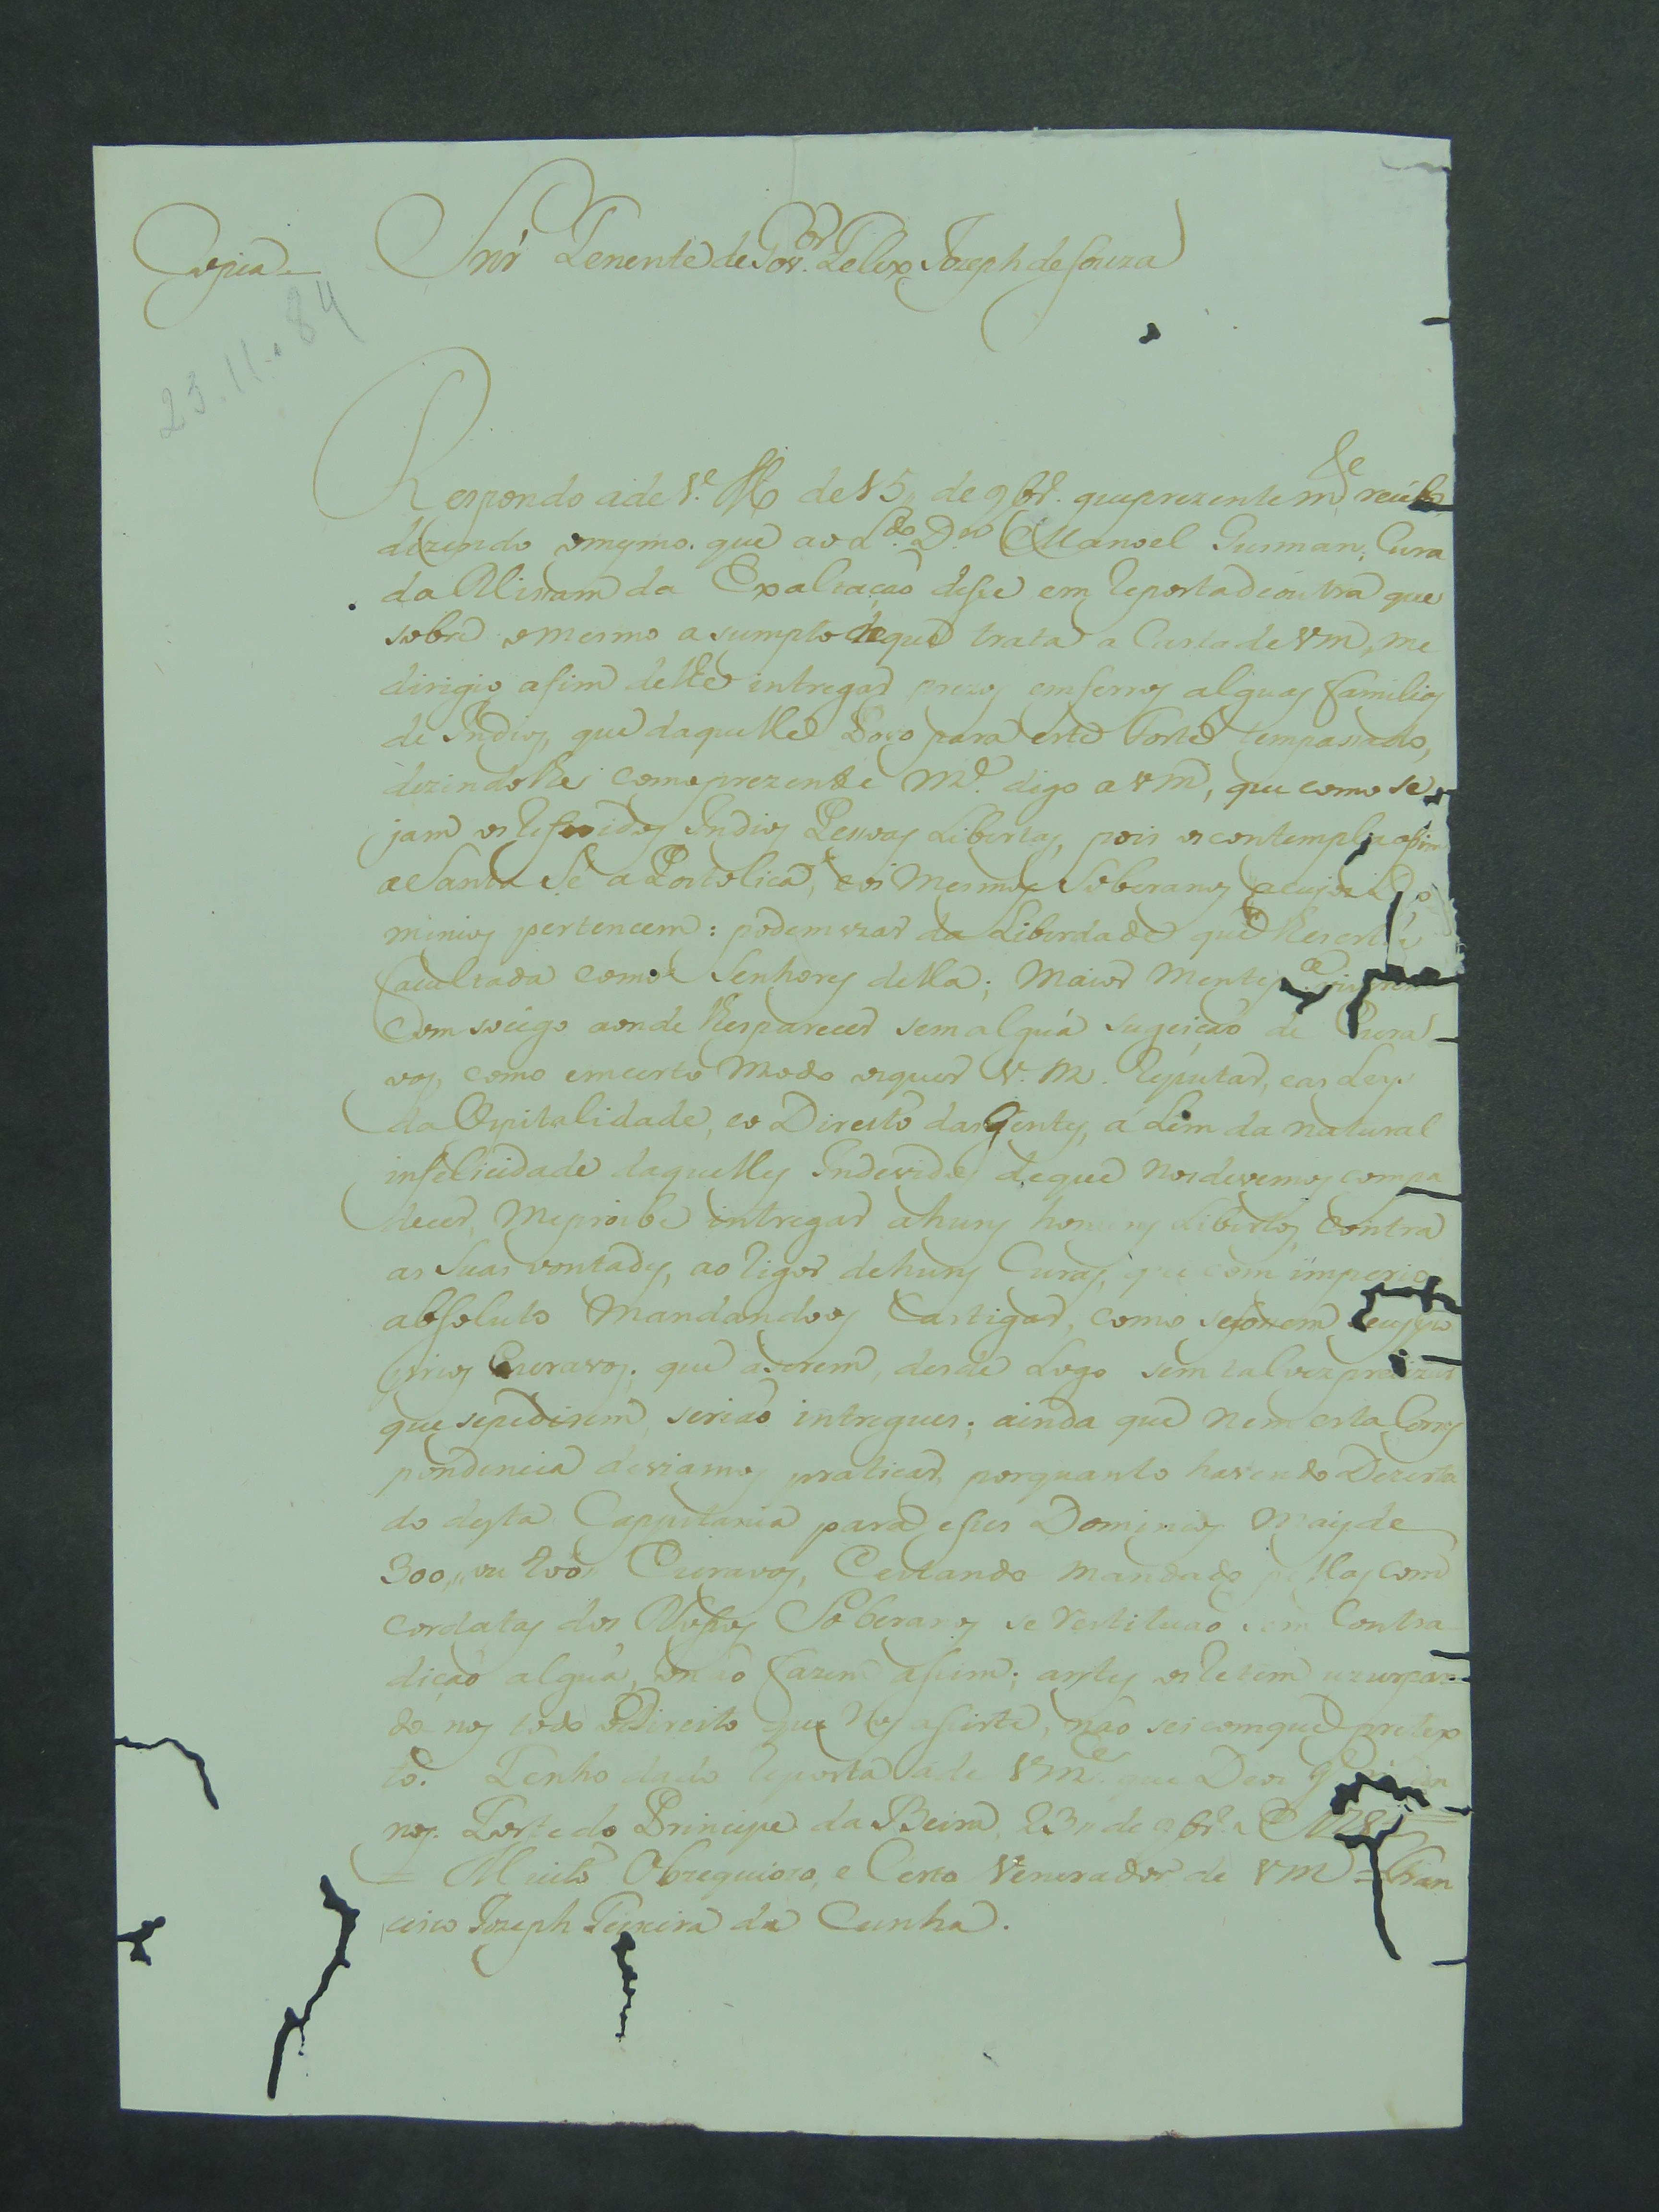 Copia
Snr̃ Tenente de Gov.or Felix Joseph de Souza
23.11.84
Respondo a de V.e M de 15,, de 9br.o que prezentem.te recebo
dizendo o mesmo que ao L.do D.n Manoel Gusman, Cura
da Missam da Exaltaçaõ disse em reposta de outra que
sobre o mesmo asumpto de que trata a Carta de Vm, me
dirigio afim de lhe intregar prezos em ferros alguas familias
de Indios, que daquelle Povo para este Forte tem passado,
dizindolhe como prezente M.e digo a Vm, que como se
jam os referidos Indios Pessoas Libertas, pois os contempla assim
a Santa Sé a Postolica, e os Mesmos Soberanos a cujos Do
minios pertencem: podem uzar da Liberdade que lhes está
facultada como Senhores della; Maior Mente p.a viverem
Com socego aonde lhes parecer sem alguã sugeiçaõ de Escra
vos, como em certo Modo os quer V. M. reputar, e as Leys
da Ospitalidade, e o Direito das Gentes, a Lem da natural
infelicidade daquelles Indeviduos de que nos devemos compa
decer, Me proibe intregar a huns homens Libertos, Contra
as Suas vontades, ao rigor de huns Curas, que com imperio
absoluto Mandandoos Castigar, como se foscem seus pro
prios Escravos. que a serem, desde Logo sem talvez precizar
que se pedissem, seriaõ intregues; ainda que nem esta Corres
pondencia deviamos praticar, porquanto havendo Dezerta
do desta Cappitania para esses Dominios Mais de
300,, ou 400,, Escravos, E estando mandado pellas com
cordatas dos Nossos Soberanos se restituaõ sem Contra
diçaõ alguã, o naõ fazem assim; antes os retem uzurpan
do nos todo o Direito que Nos assiste, naõ sei com que pretex
to. Tenho dado reposta a de Vm.ce que Deos g.e
nos. Forte do Principe da Beira 23,, de 9br.o
= Muito Obzequiozo, e Certo Venerador de VM = Fran
cisco Joseph Teixeira da Cunha.